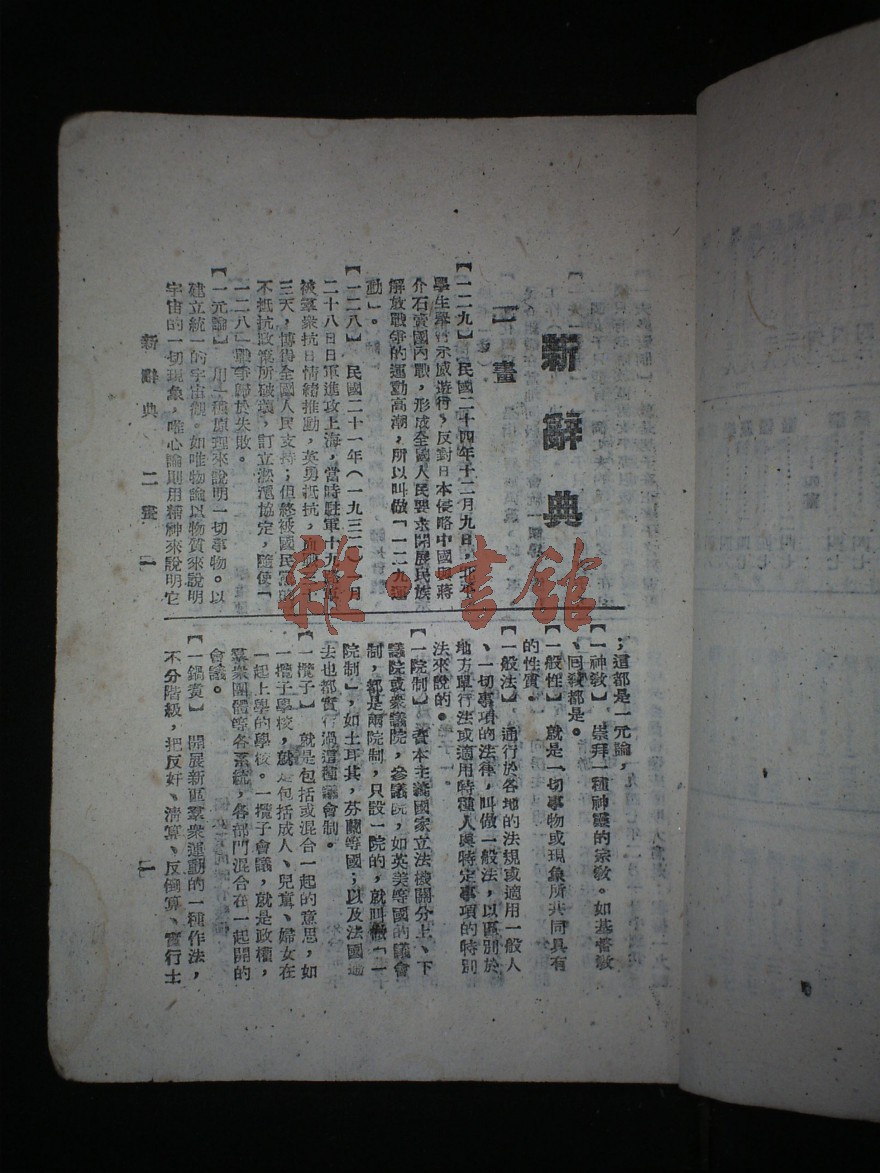 新辭典
一畫
【一二九】 民國二十四年十二月九日，北平
學生舉行示威遊行，反對日本侵略中國與蔣
介石賣國內戰，形成全國人民要求開展民族
解放戰爭的運動高潮，所以叫做「一二九運
動」。
【一二八】 民國二十一年（一九三二）一月
二十八日日軍進攻上海，當時駐軍十九路軍
被羣衆抗日情緒推動，英勇抵抗，血戰
三天，博得全國人民支持；但終被國民黨的
不抵抗政策所破壞，訂立淞滬協定，隨使「
一二八」戰爭歸於失敗。
【一元論】 用一種原理來說明一切事物。以
建立統一的宇宙觀。如唯物論以物質來說明
宇宙的一切現象，唯心論則用精神來說明它
；這都是一元論，
【一神敎】 崇拜一種神靈的宗敎。如基督敎
、回敎都是。
【一般性】 就是一切事物或現象所共同具有
的性質。
【一般法】 通行於各地的法規或適用一般人
、一切事項的法律，叫做一般法，以區別於
地方單行法或適用特種人與特定事項的特別
法來說的。
【一院制】 資本主義國家立法機關分上、下
議院或衆議院，參議院，如英美等國的議會
制，都是兩院制，只設一院的，就叫做「一
院制」，如土耳其，芬蘭等國；以及法國過
去也都實行過這種議會制。
【一攬子】 就是包括或混合一起的意思，如
一攬子學校，就是包括成人、兒童、婦女在
一起上學的學校。一攬子會議，就是政權，
羣衆團體等各系統，各部門混合在一起開的
會議。
【一鍋煑】 開展新區羣衆運動的一種作法，
不分階級，把反奸、清算、反倒算、實行土
新辭典 一畫
一
雜·書館